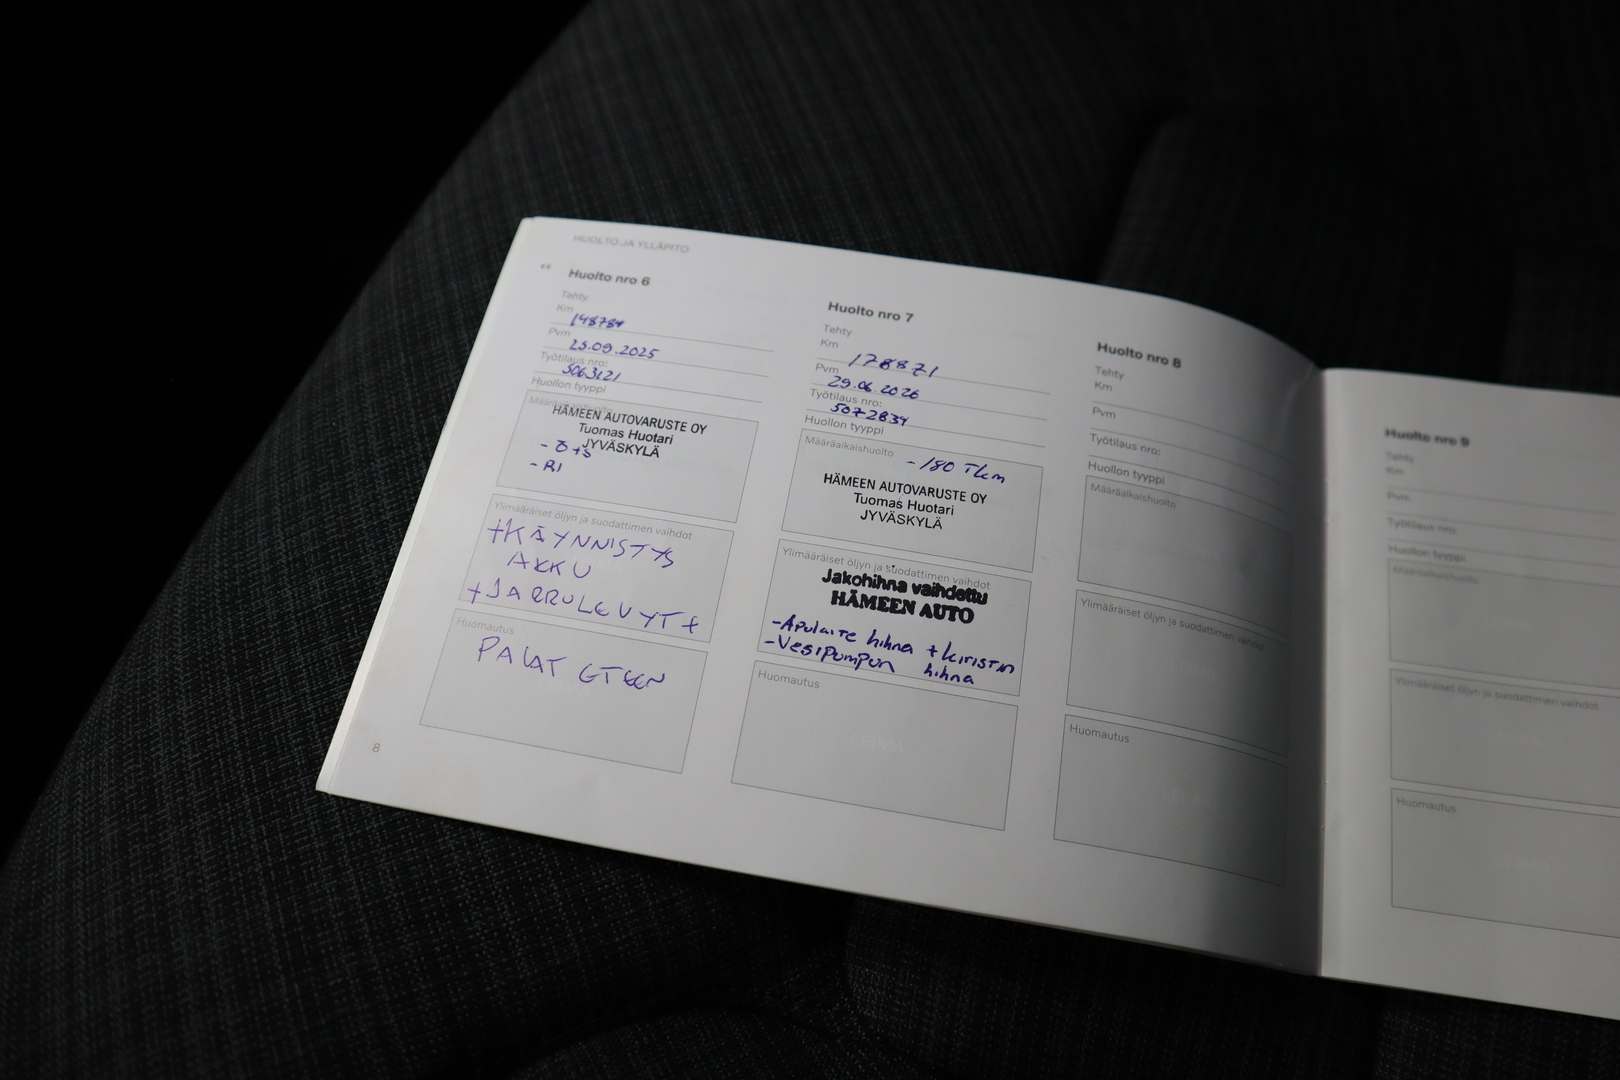 HUOLTO JA YLLÄPITO
Huolto nro 6
Tehty
Km
148784
Pvm
25.09.2025
Työtilaus nro:
5063121
Huollon tyyppi
Määräaikaishuolto
HÄMEEN AUTOVARUSTE OY
Tuomas Huotari
JYVÄSKYLÄ
- Ö+S
- RI
Ylimääräiset öljyn ja suodattimen vaihdot
+KÄYNNISTYS
AKKU
+JARRULEVYT+
Huomautus
PALAT ETEEN
8
Huolto nro 7
Tehty
Km
178871
Pvm
29.06.2026
Työtilaus nro:
5072834
Huollon tyyppi
Määräaikaishuolto
- 180 Tkm
HÄMEEN AUTOVARUSTE OY
Tuomas Huotari
JYVÄSKYLÄ
Ylimääräiset öljyn ja suodattimen vaihdot
Jakohihna vaihdettu
HÄMEEN AUTO
-Apulaite hihna +kiristin
-Vesipumpun hihna
Huomautus
LEIMA
Huolto nro 8
Tehty
Km
Pvm
Työtilaus nro:
Huollon tyyppi
Määräaikaishuolto
Ylimääräiset öljyn ja suodattimen vaihdot
Huomautus
LEIMA
Huolto nro 9
Tehty
Km
Pvm
Työtilaus nro:
Huollon tyyppi
Määräaikaishuolto
Ylimääräiset öljyn ja suodattimen vaihdot
Huomautus